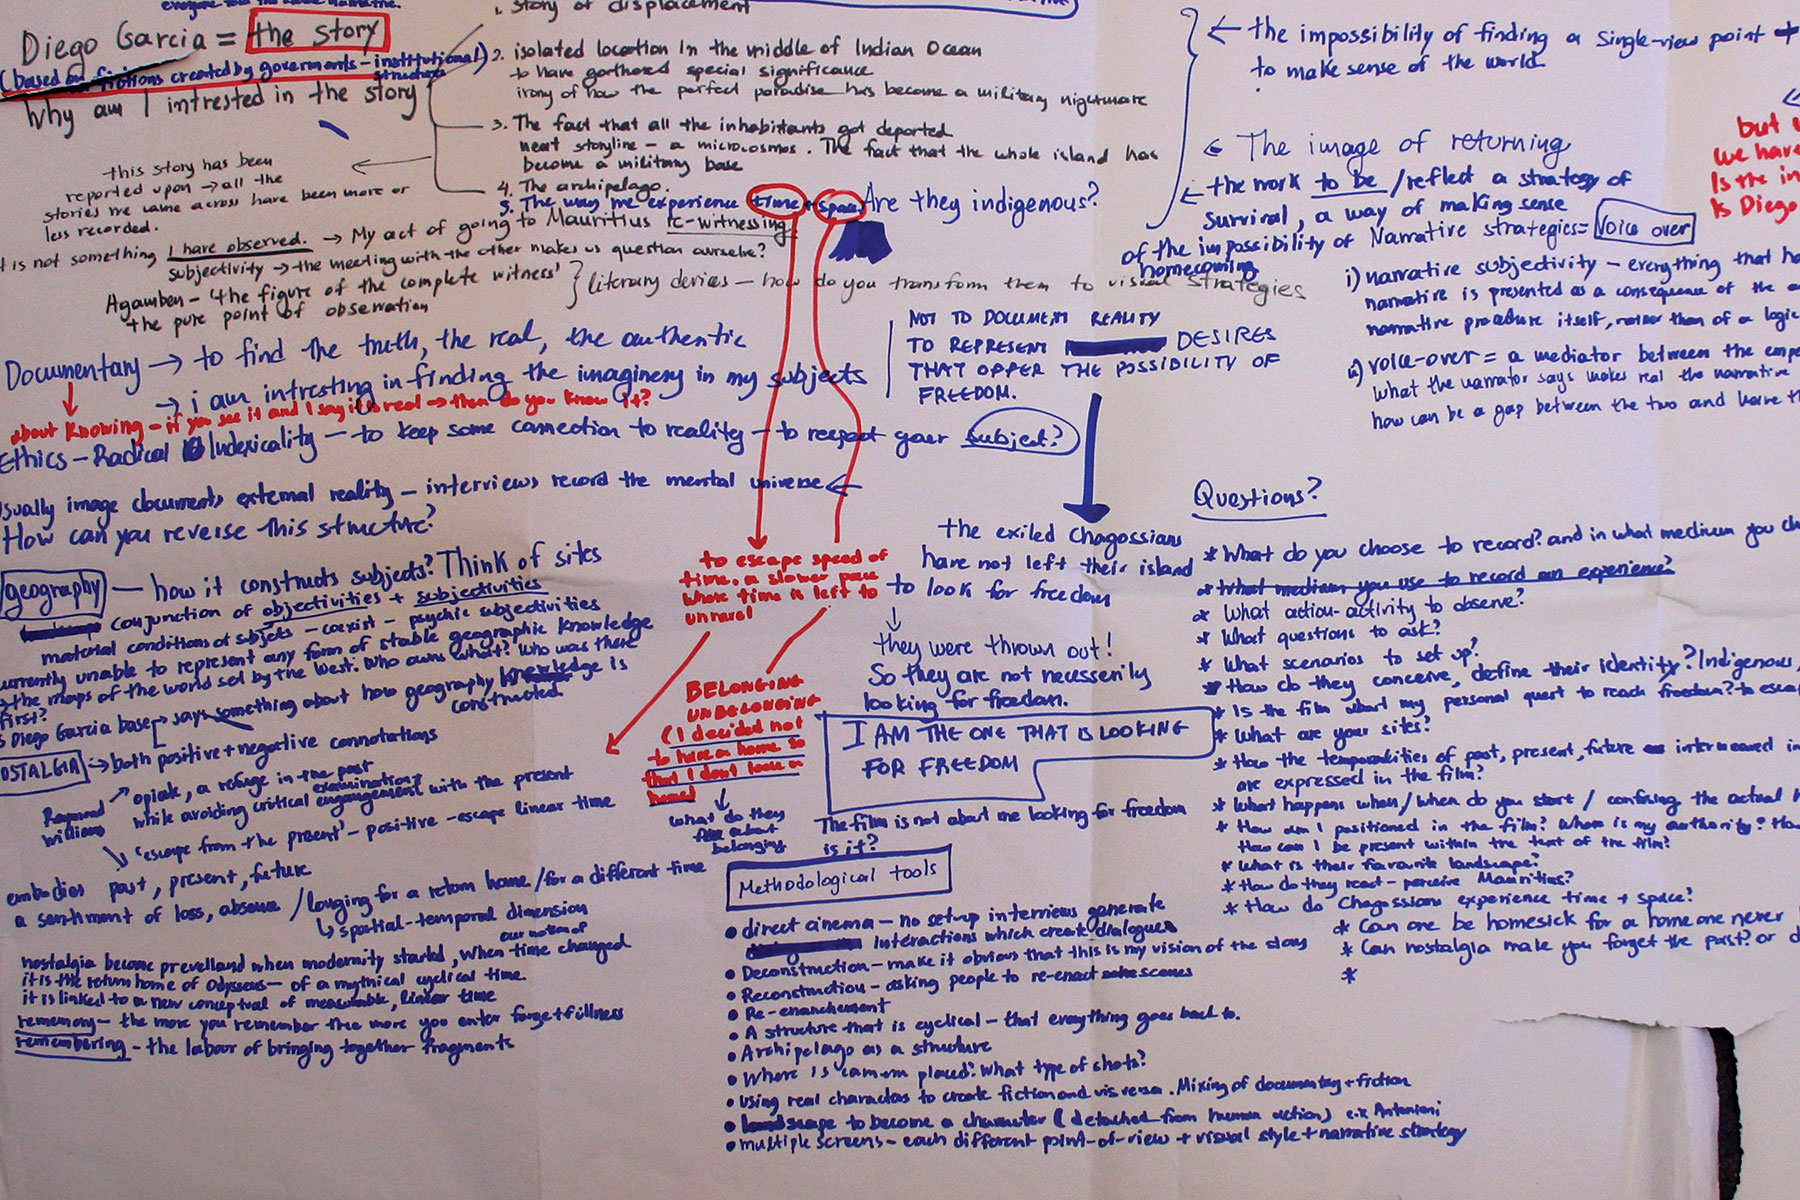 everyone told the same narrative.
Diego Garcia = the story
(based on fictions created by goverments - institutional)
structures
Why am I intrested in the story
this story has been
reported upon → all the
stories we came across have been more or
less recorded.
1. story of displacement
2. isolated location in the middle of Indian Ocean
to have gathered special significance
irony of how the perfect paradise has become a military nightmare
3. The fact that all the inhabitants got deported
neat storyline - a microcosmos. The fact that the whole island has
become a military base
4. The archipelago.
5. The way we experience time + space. Are they indigenous?
t is not something I have observed. → My act of going to Mauritius re-witnessing
subjectivity → the meeting with the other makes us question ourselve?
Agamben - 'the figure of the complete witness'
the pure point of observation
literary devices - how do you transform them to visual strategies
Documentary → to find the truth, the real, the authentic
→ i am intresting in finding the imaginery in my subjects
about Knowing - if you see it and I say it is real → then do you know it?
Ethics - Radical Indexicality - to keep some connection to reality - to respect your subject?
usually image documents external reality - interviews record the mental universe ←
How can you reverse this structure?
NOT TO DOCUMENT REALITY
TO REPRESENT DESIRES
THAT OFFER THE POSSIBILITY OF
FREEDOM.
← the impossibility of finding a single-view point
to make sense of the world
← The image of returning
← the work to be / reflect a strategy of
survival, a way of making sense
of the impossibility of
homecoming
Narrative strategies = Voice over
i) narrative subjectivity - everything that ha
narrative is presented as a consequence of the
narrative procedure itself, rather than of a logic
ii) voice-over = a mediator between the
What the narrator says makes real the narrative
how can be a gap between the two and leave th
but
we have
Is the in
Is Diego
geography - how it constructs subjects? Think of sites
conjunction of objectivities + subjectivities
material conditions of subjects - coexist - psychic subjectivities
currently unable to represent any form of stable geographic knowledge
the maps of the world set by the West. Who owns what? Who was there
first?
Diego Garcia base → says something about how geography knowledge is
constructed
OSTALGIA → both positive + negative connotations
Raymond
Williams
opiate, a refuge in the past
examination +
while avoiding critical engangement with the present
'escape from the present' - positive - escape linear time
embodies past, present, future
a sentiment of loss, absence / longing for a return home / for a different time
↳ spatial-temporal dimension
our notion of
nostalgia became prevelland when modernity started, when time changed
it is the return home of Odysseus - of a mythical cyclical time.
it is linked to a new conceptual of measurable, linear time
rememory - the more you remember the more you enter forgetfullness
remembering - the labour of bringing together fragments
to escape speed of
time. a slower pace
whose time is left to
unravel
BELONGING
UNBELONGING
(I decided not
to have a home so
that I don't loose a
home)
what do they
about
belonging
the exiled Chagossians
have not left their island
to look for freedom
↓
they were thrown out!
So they are not necessenily
looking for freedom.
I AM THE ONE THAT IS LOOKING
FOR FREEDOM
The film is not about me looking for freedom
is it?
Methodological tools
• direct cinema - no set-up interviews generate
interactions which create dialogues
• Deconstruction - make it obvious that this is my vision of the story
• Reconstruction - asking people to re-enact scenes
• Re-enanchement
• A structure that is cyclical - that everything goes back to.
• Archipelago as a structure
• Where is camera placed? What type of shots?
• using real characters to create fiction and vis versa. Mixing of documentary + fiction
• landscape to become a character (detached from human action) e.x Antonioni
• multiple screens - each different point-of-view + visual style + narrative strategy
Questions?
* What do you choose to record? and in what medium you ch
* What medium you use to record an experience?
* What action-activity to observe?
* What questions to ask?
* What scenarios to set up?
* How do they conceive, define their identity? Indigenous,
* Is the film about my personal quest to reach freedom? to escap
* What are your sites?
* How the temporalities of past, present, future interweaved in
are expressed in the film?
* What happens when / when do you start / confusing the actual
* How am I positioned in the film? Where is my authority? Ho
How can I be present within the text of the film?
* What is their favourite landscape?
* How do they react - perceive Mauritius?
* How do Chagossians experience time + space?
* Can one be homesick for a home one never
* Can nostalgia make you forget the past? or
*